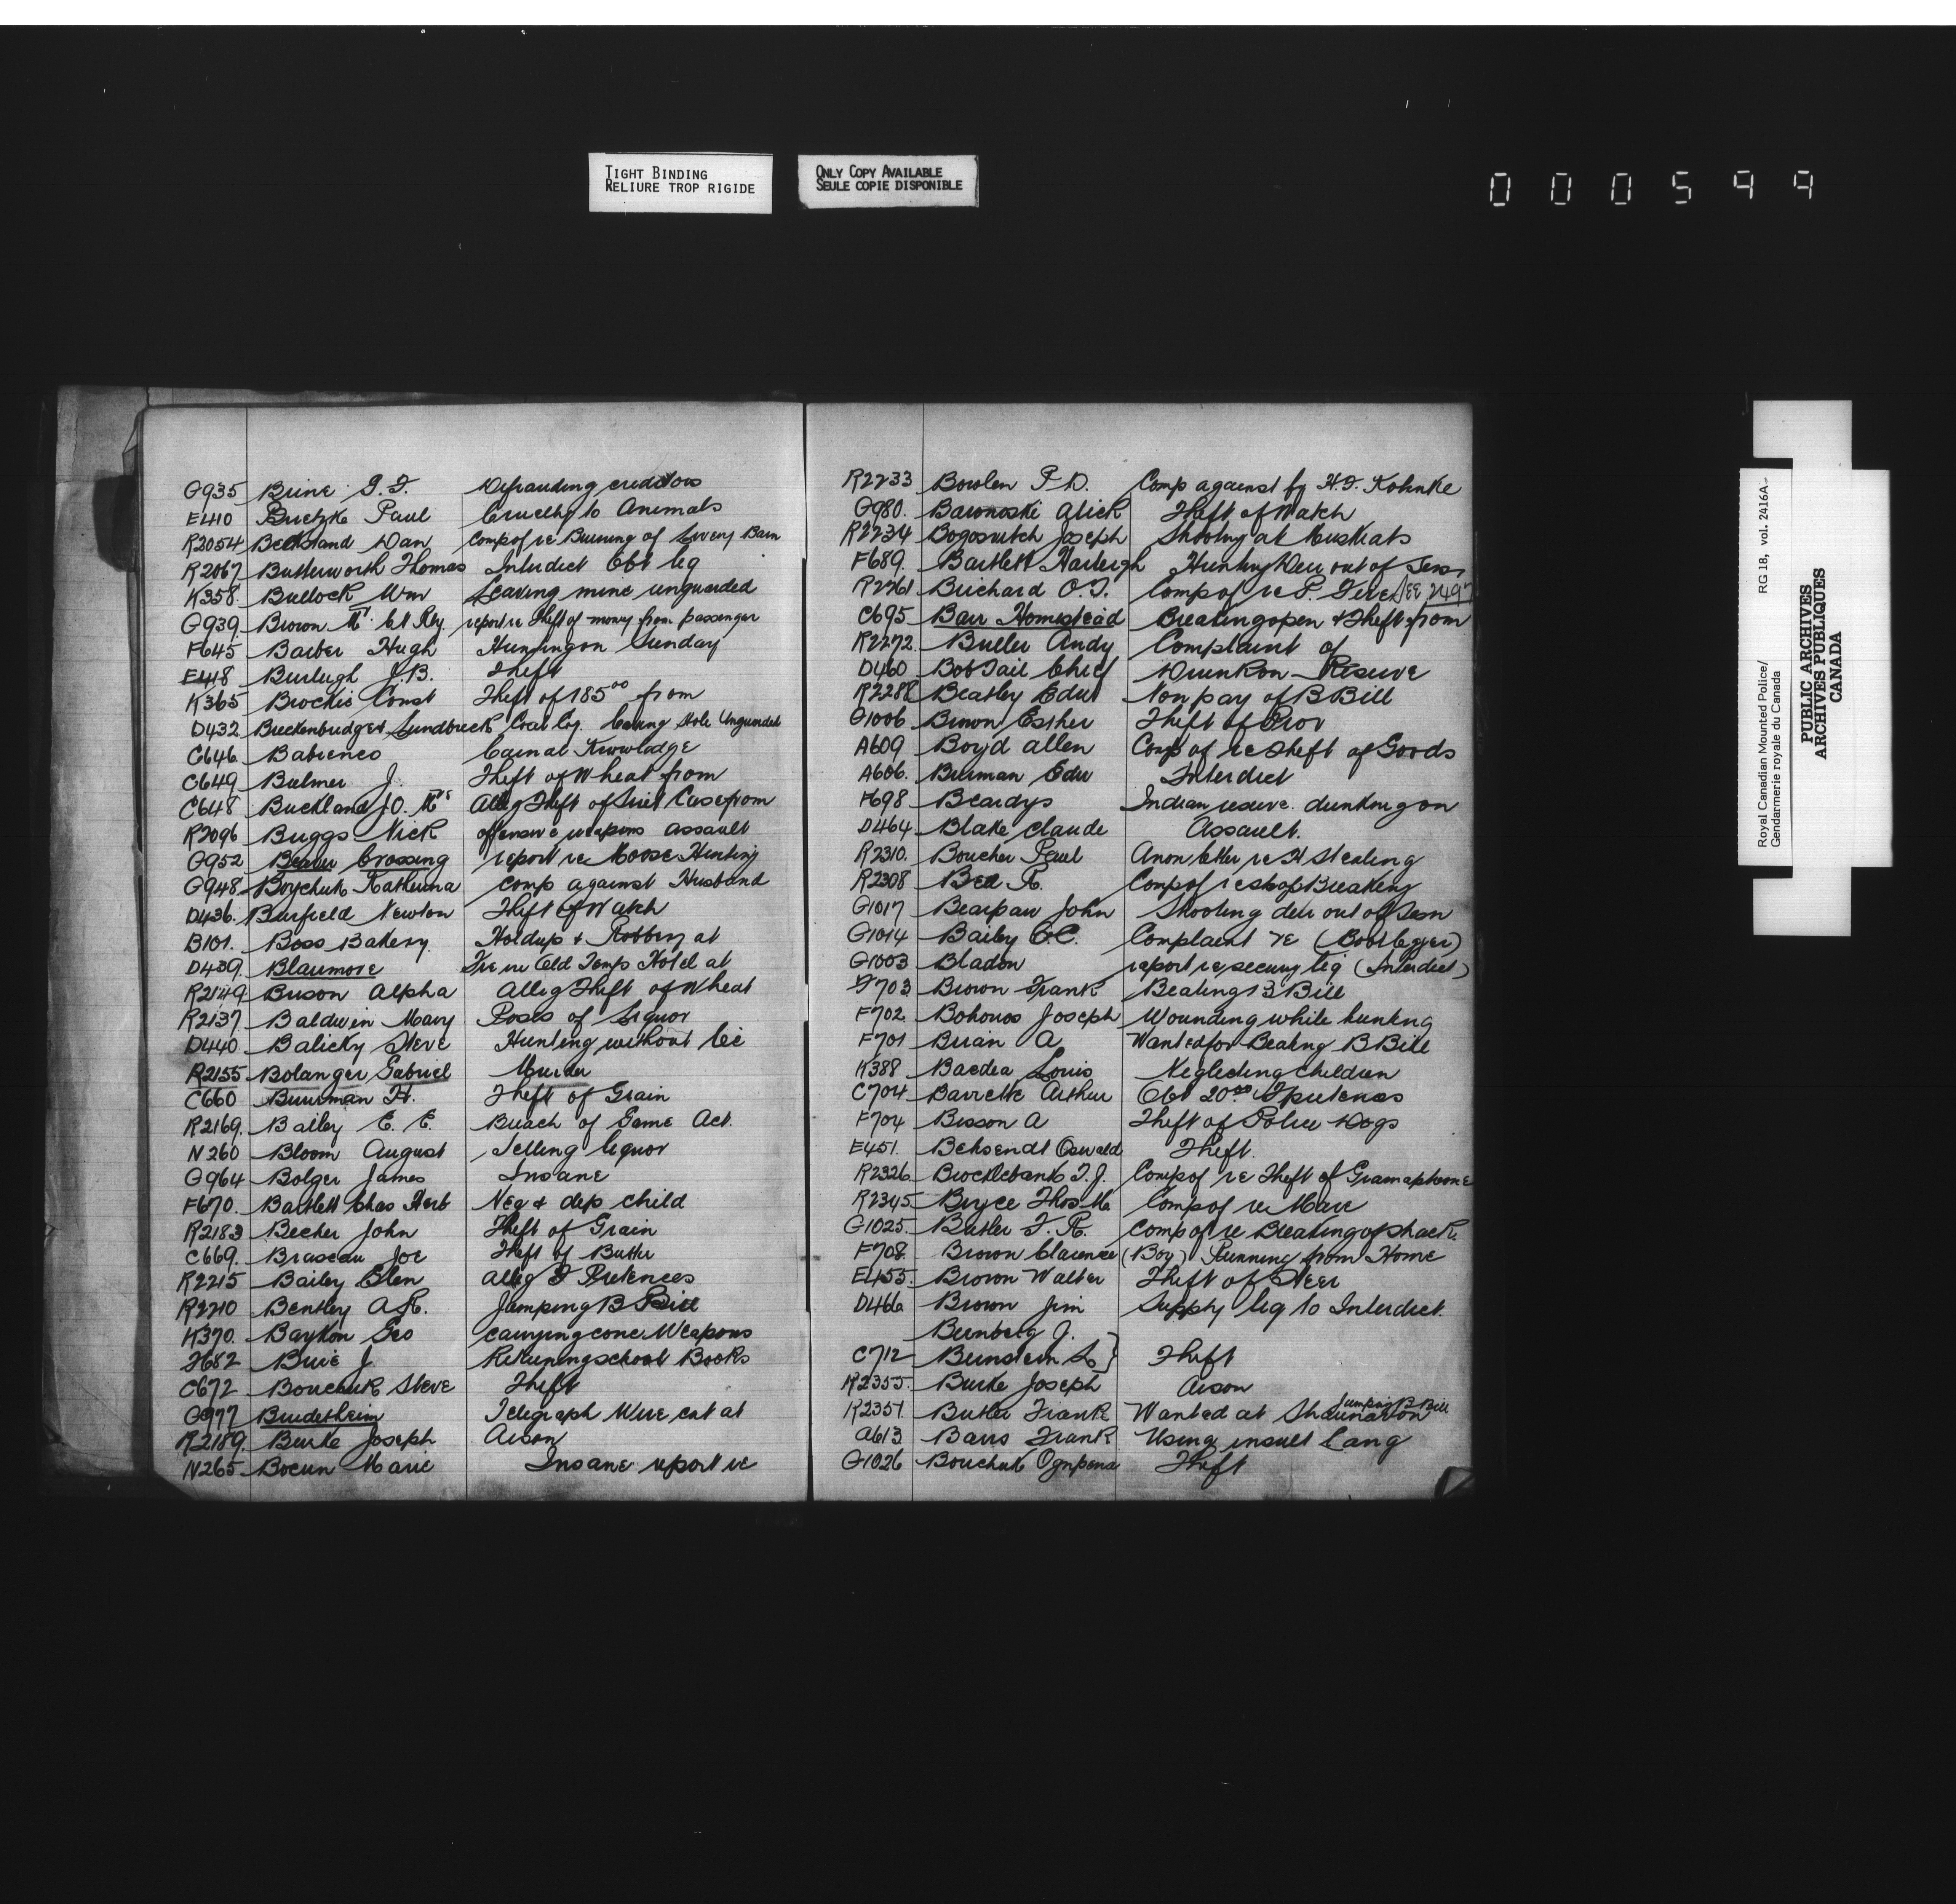 TIGHT BINDING
RELIURE TROP RIGIDE
ONLY COPY AVAILABLE
SEULE COPIE DISPONIBLE
000599
G935 Brine S. F. Defrauding creditors
E410 Bretzke Paul Cruelty to Animals
R2054 Beckstand Dan Comp of re Burning of Livery Barn
R2067 Butterworth Thomas Interdict Obt liq
K358 Bullock Wm Leaving mine unguarded
G939 Brown report re theft of money from passenger
F645 Barber Hugh Hunting on Sunday
E418 Burleigh J.B. Theft
K365 Brockie Const Theft of 185⁰⁰ from
D432 Breckenbridge & Lundbreck Coal Co. Leaving Hole Unguarded
C646 Babienco Carnal Knowledge
C649 Bulmer J. Theft of Wheat from
C648 Buckland J.O. Mrs Alleg Theft of Suit Case from
R2096 Buggs Nick offensive weapons assault
G952 Beaver Crossing report re Moose Hunting
G948 Boychuk Katherina comp against Husband
D436. Burfield Newton Theft of Watch
B101. Boss Bakery Holdup & Robbery at
D439. Blairmore Fire in Old Temps Hotel at
R2149 Buson Alpha Alleg Theft of Wheat
R2137 Baldwin Mary Posses of Liquor
D440 Balicky Steve Hunting without lic
R2155 Bolanger Gabriel Murder
C660 Buurman H. Theft of Grain
R2169. Bailey E. E. Breach of Game Act.
N260 Bloom August Selling liquor
G964 Bolger James Insane
F670. Bartlett Chas Herb Neg & dep child
R2183 Becher John Theft of Grain
C669. Braseau Joe Theft of Butter
R2215 Bailey Glen Alleg F Pretences
R2210 Bentley A.R. Jumping B Bill
K370. Baykon Geo carrying conc Weapons
F682 Buie J. Returning school Books
C672 Bouchuk Steve Theft
G977 Bruderheim Telegraph Wire cut at
R2189. Burke Joseph Arson
N265 Bocun Marie Insane report re
R2233 Bowlen P. D. Comp against by H.F. Kohnke
G980. Baronoski Alick Theft of Watch
R2234 Bogosvitch Joseph Shooting at Muskrats
F689. Bartlett Harleigh Hunting Deer out of Seas
R2261 Brichard O.J. Comp of re P. Fire SEE 2497
C695 Barr Homestead Breaking open & Theft from
R2272. Buller Andy Complaint of
D460 Bob Tail Chief Drunk on Reserve
R2288 Beatley Edw Non pay of B Bill
G1006 Brown Esther Theft of Prov
A609 Boyd Allen Comp of re Theft of Goods
A606. Burman Edw Interdict
F698 Beardys Indian reserve. drinking on
D464 Blake Claude Assault.
R2310. Boucher Paul Anon letter re H Stealing
R2308 Bell R. Comp of re shop Breaking
G1017 Bearpaw John Shooting deer out of Seasn
G1014 Bailey C.C. Complaint re (Bootlegger)
G1003 Bladon report re securing liq (Interdict)
F703 Brown Frank Beating B Bill
F702. Bohonos Joseph Wounding while hunting
F701 Brian A Wanted for Beating B Bill
K388 Baedea Louis Neglecting children
C704 Barrette Arthur Obt 20⁰⁰ F pretences
F704 Bisson A Theft of Police Dogs
E451. Behsendt Oswald Theft.
R2326 Brocklebank T.J. Comp of re Theft of Gramaphone
R2345 Bryce Thos M. Comp of re Mare
G1025. Butler F. R. Comp of re Breaking of shack
F708 Brown Clarence (Boy) Running from Home
E455. Brown Walter Theft of Steer
D466 Brown Jim Supply liq to Interdict.
Bernberg J.
C712 Bernstein S. } Theft
R2355 Burke Joseph Arson
R2357. Butler Frank Wanted at Shaunavon Jumping B Bill
A613. Barrs Frank Using insult Lang
G1026 Bouchuk Theft
Royal Canadian Mounted Police/
Gendarmerie royale du Canada
RG 18, vol. 2416A
PUBLIC ARCHIVES
ARCHIVES PUBLIQUES
CANADA